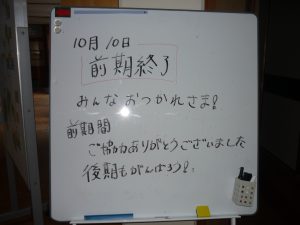 10月10日
前期終了
みんなおつかれさま!
前期間
ご協力ありがとうございました
後期もがんばろう!